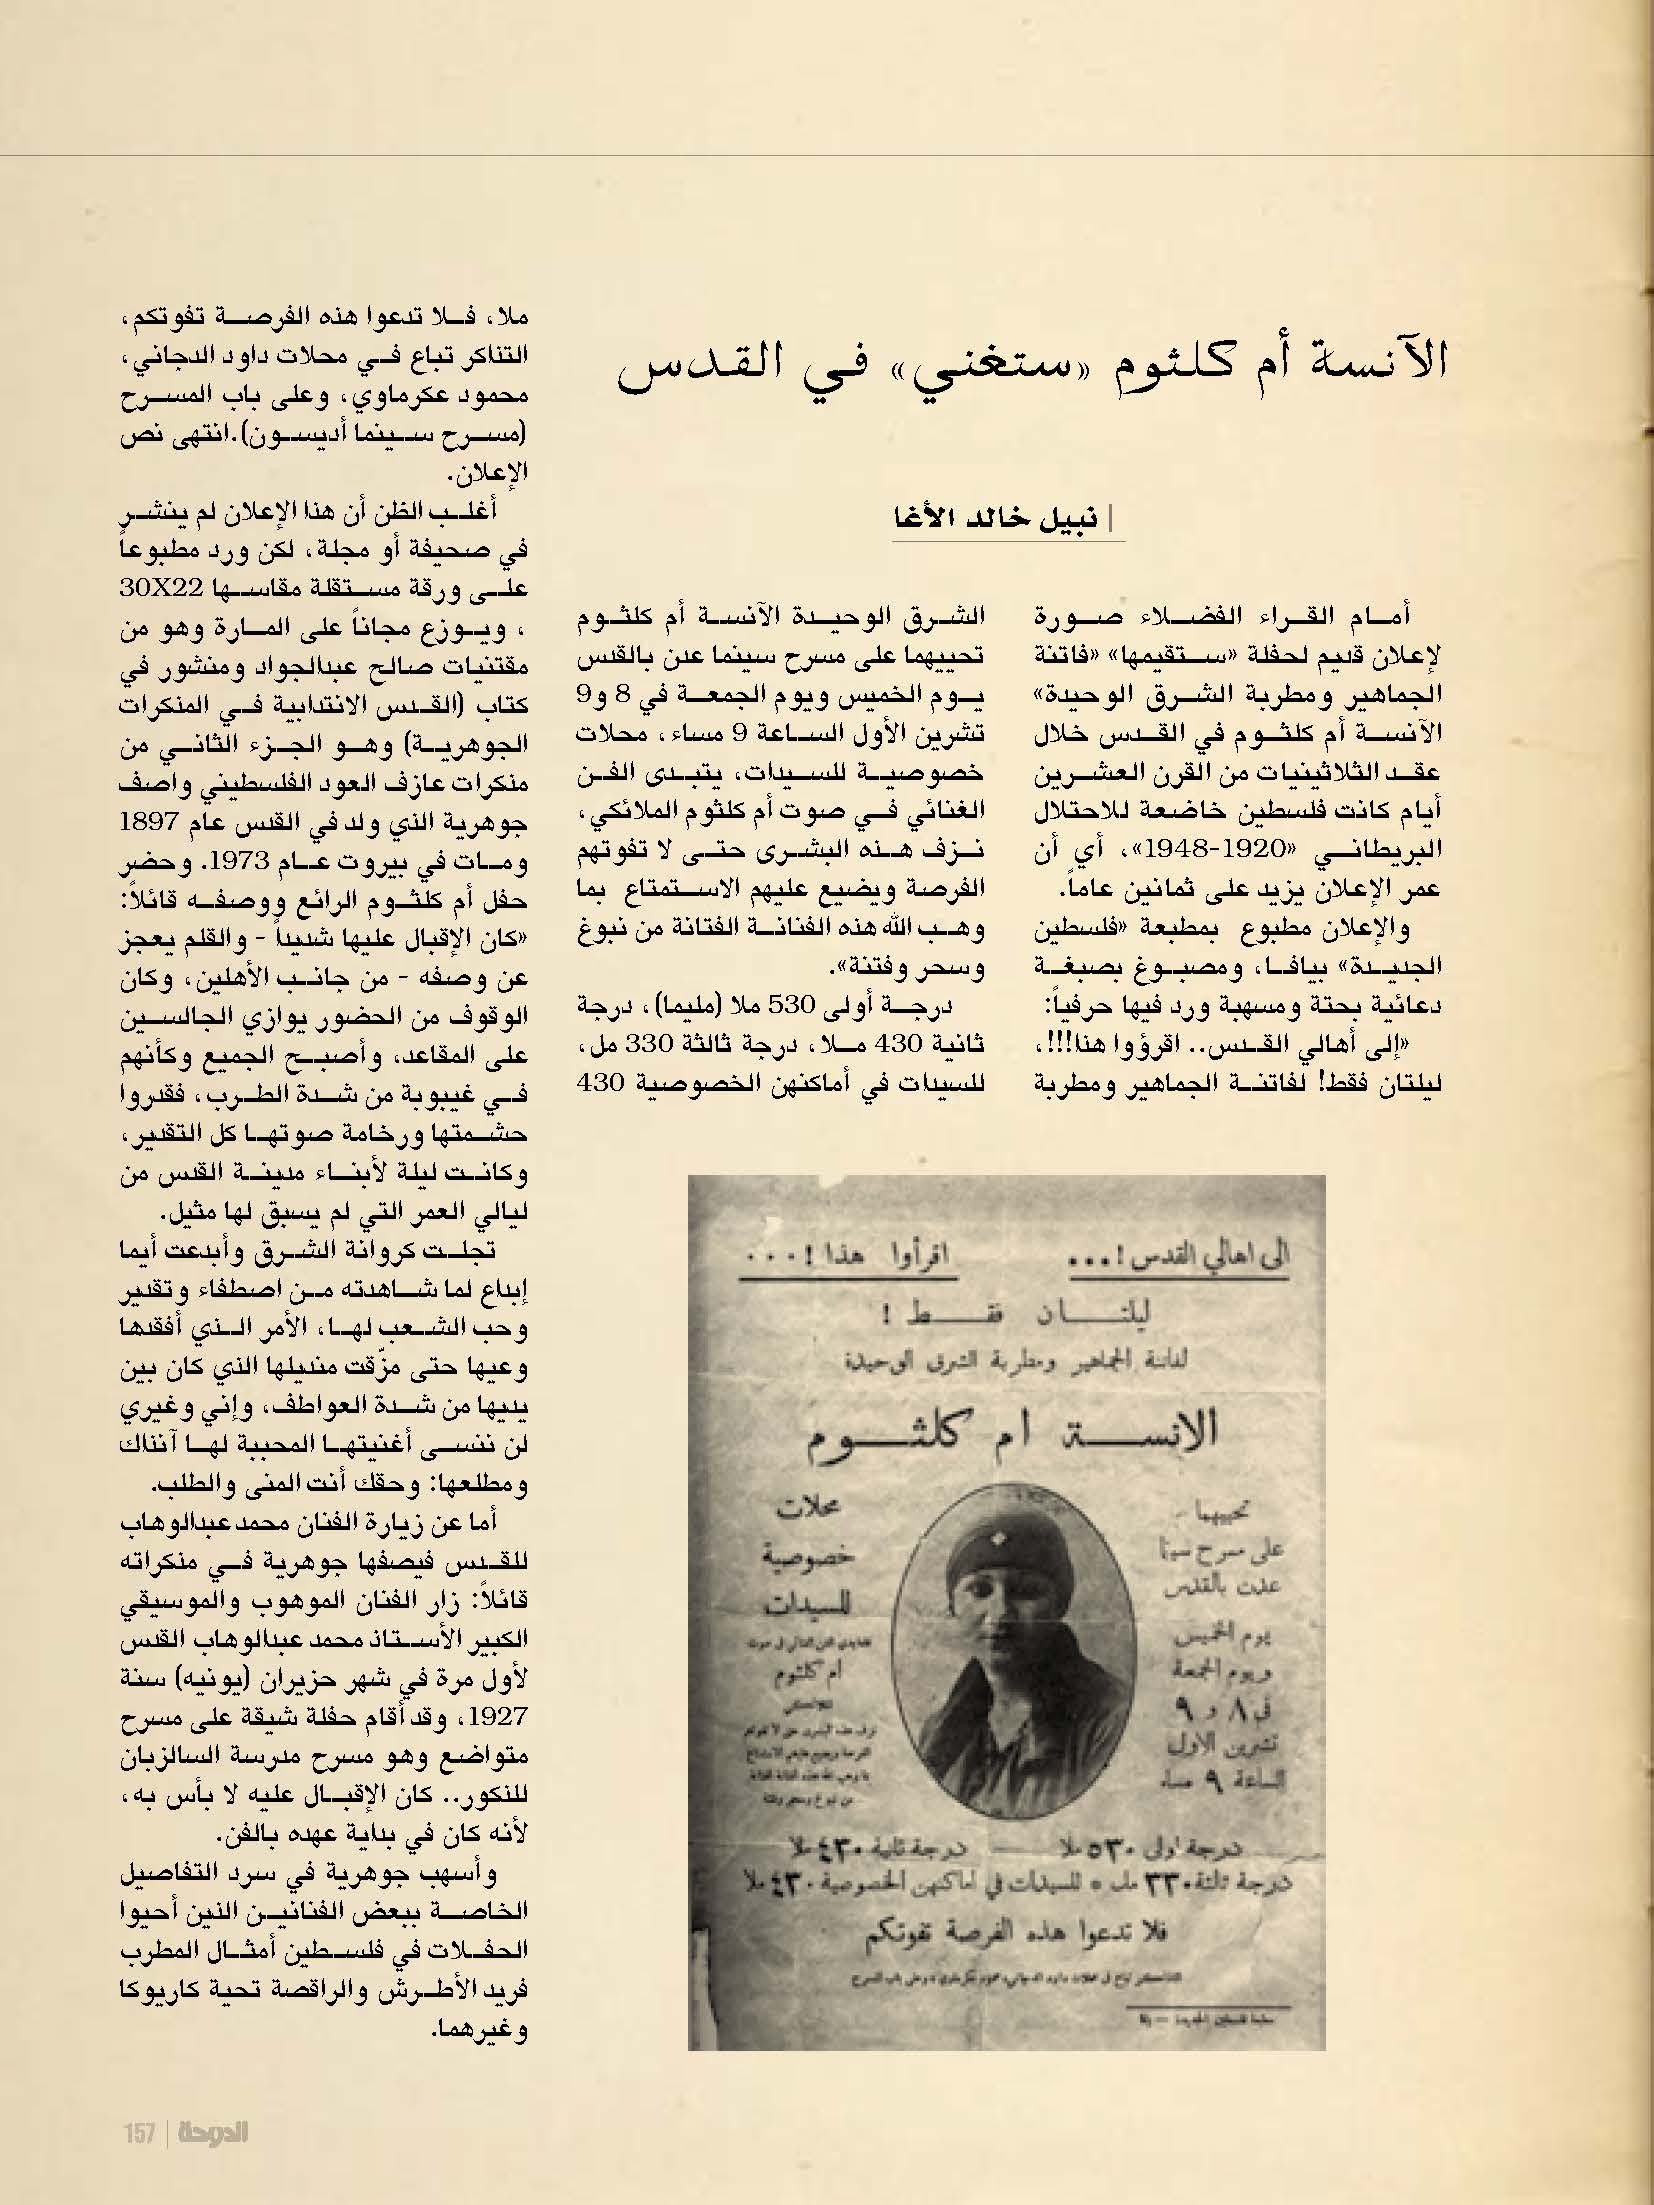 الآنسة أم كلثوم «ستغني» في القدس
| نبيل خالد الأغا
أمام القراء الفضلاء صورة
لإعلان قديم لحفلة «ستقيمها» «فاتنة
الجماهير ومطربة الشرق الوحيدة»
الآنسة أم كلثوم في القدس خلال
عقد الثلاثينيات من القرن العشرين
أيام كانت فلسطين خاضعة للاحتلال
البريطاني «1920-1948»، أي أن
عمر الإعلان يزيد على ثمانين عاماً.
والإعلان مطبوع بمطبعة «فلسطين
الجديدة» بيافا، ومصبوغ بصبغة
دعائية بحتة ومسهبة ورد فيها حرفياً:
«إلى أهالي القدس.. اقرؤوا هذا!!!،
ليلتان فقط! لفاتنة الجماهير ومطربة
الشرق الوحيدة الآنسة أم كلثوم
تحييهما على مسرح سينما عدن بالقدس
يوم الخميس ويوم الجمعة في 8 و9
تشرين الأول الساعة 9 مساء، محلات
خصوصية للسيدات، يتبدى الفن
الغنائي في صوت أم كلثوم الملائكي،
نزف هذه البشرى حتى لا تفوتهم
الفرصة ويضيع عليهم الاستمتاع بما
وهب الله هذه الفنانة الفتانة من نبوغ
وسحر وفتنة».
درجة أولى 530 ملا (مليما)، درجة
ثانية 430 ملا، درجة ثالثة 330 مل،
للسيدات في أماكنهن الخصوصية 430
ملا، فلا تدعوا هذه الفرصة تفوتكم،
التذاكر تباع في محلات داود الدجاني،
محمود عكرماوي، وعلى باب المسرح
(مسرح سينما أديسون).انتهى نص
الإعلان.
أغلب الظن أن هذا الإعلان لم ينشر
في صحيفة أو مجلة، لكن ورد مطبوعاً
على ورقة مستقلة مقاسها 30X22
، ويوزع مجاناً على المارة وهو من
مقتنيات صالح عبدالجواد ومنشور في
كتاب (القدس الانتدابية في المذكرات
الجوهرية) وهو الجزء الثاني من
مذكرات عازف العود الفلسطيني واصف
جوهرية الذي ولد في القدس عام 1897
ومات في بيروت عام 1973. وحضر
حفل أم كلثوم الرائع ووصفه قائلاً:
«كان الإقبال عليها شديداً - والقلم يعجز
عن وصفه - من جانب الأهلين، وكان
الوقوف من الحضور يوازي الجالسين
على المقاعد، وأصبح الجميع وكأنهم
في غيبوبة من شدة الطرب، فقدروا
حشمتها ورخامة صوتها كل التقدير،
وكانت ليلة لأبناء مدينة القدس من
ليالي العمر التي لم يسبق لها مثيل.
تجلت كروانة الشرق وأبدعت أيما
إبداع لما شاهدته من اصطفاء وتقدير
وحب الشعب لها، الأمر الذي أفقدها
وعيها حتى مزّقت منديلها الذي كان بين
يديها من شدة العواطف، وإني وغيري
لن ننسى أغنيتها المحببة لها آنذاك
ومطلعها: وحقك أنت المنى والطلب.
أما عن زيارة الفنان محمد عبدالوهاب
للقدس فيصفها جوهرية في مذكراته
قائلاً: زار الفنان الموهوب والموسيقي
الكبير الأستاذ محمد عبدالوهاب القدس
لأول مرة في شهر حزيران (يونيه) سنة
1927، وقد أقام حفلة شيقة على مسرح
متواضع وهو مسرح مدرسة السالزيان
للذكور.. كان الإقبال عليه لا بأس به،
لأنه كان في بداية عهده بالفن.
وأسهب جوهرية في سرد التفاصيل
الخاصة ببعض الفنانين الذين أحيوا
الحفلات في فلسطين أمثال المطرب
فريد الأطرش والراقصة تحية كاريوكا
وغيرهما.
الى اهالي القدس !... اقرأوا هذا ! ...
ليلتان فقط !
لفاتنة الجماهير ومطربة الشرق الوحيدة
الانسة ام كلثوم
تحييهما
على مسرح سينما
عدن بالقدس
يوم الخميس
ويوم الجمعة
في ٨ و ٩
تشرين الاول
الساعة ٩ مساء
محلات
خصوصية
للسيدات
ام كلثوم
درجة اولى ٥٣٠ ملا — درجة ثانية ٤٣٠ ملا
درجة ثالثة ٣٣٠ مل * للسيدات في اماكنهن الخصوصية ٤٣٠ ملا
فلا تدعوا هذه الفرصة تفوتكم
الدوحة | 157